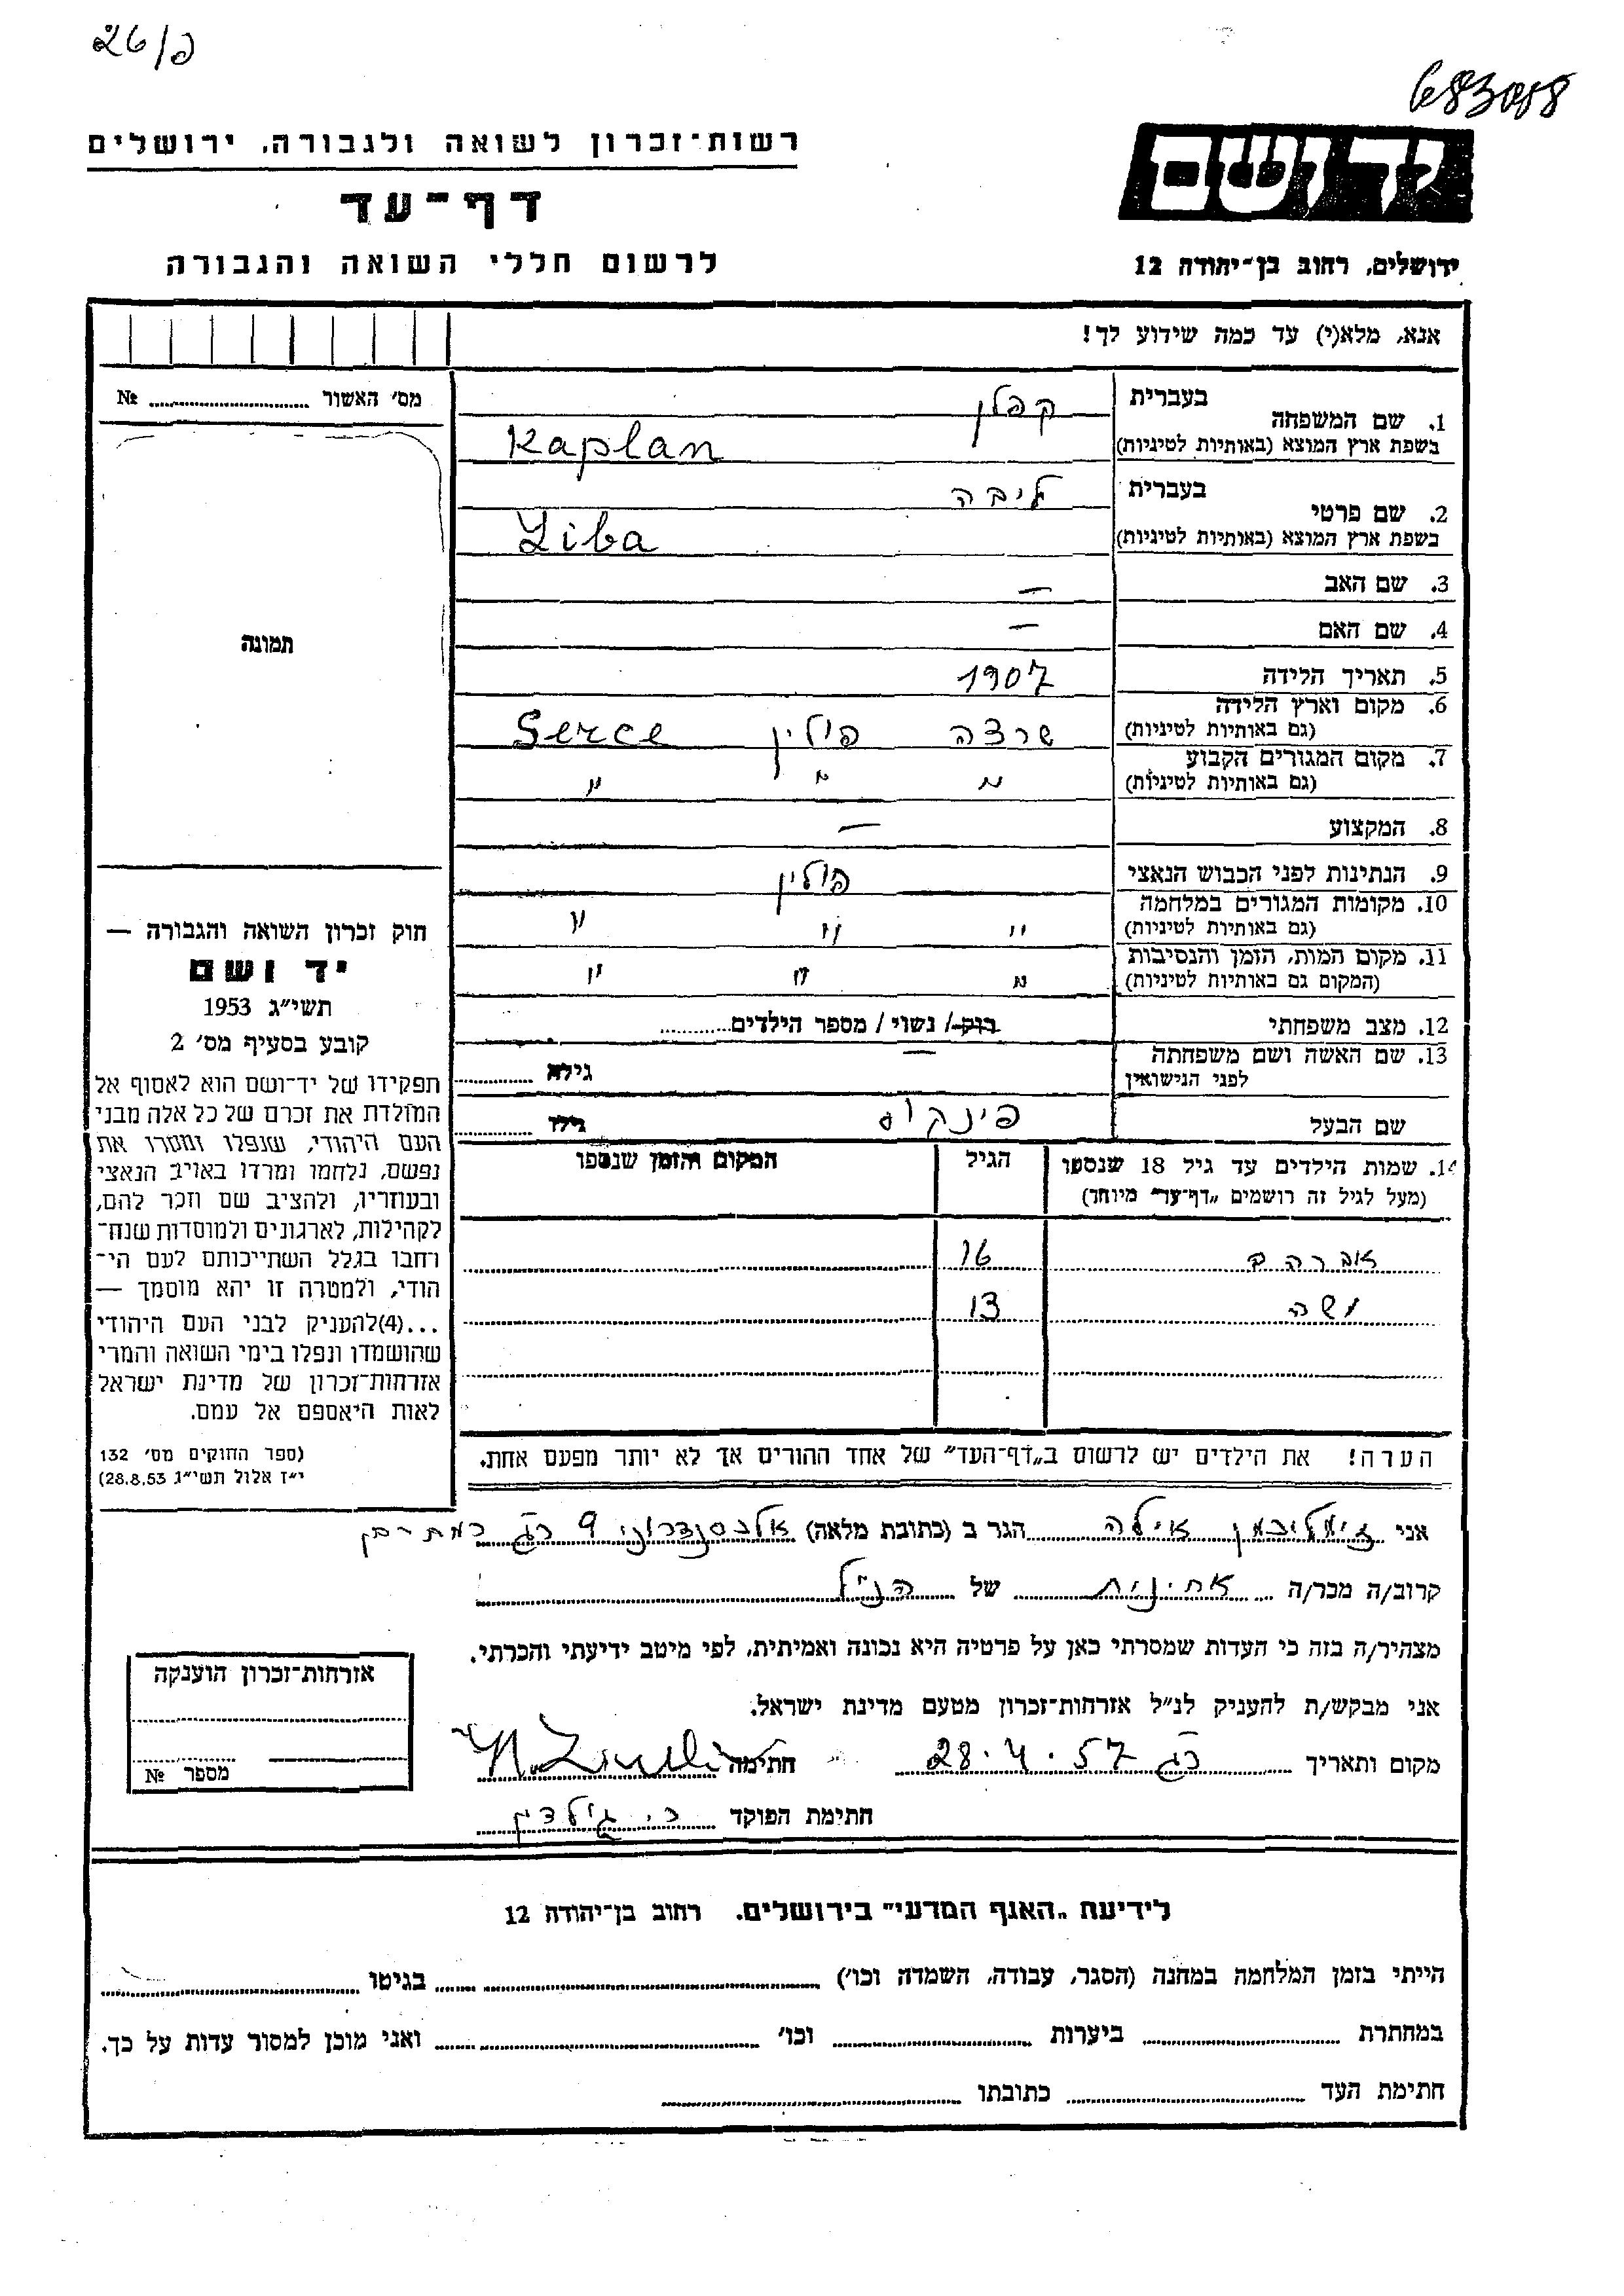 26/פ
683088
רשות־זכרון לשואה ולגבורה, ירושלים
דף־עד
לרשום חללי השואה והגבורה
יד ושם
ירושלים, רחוב בן־יהודה 12
אנא, מלא(י) עד כמה שידוע לך!
מס׳ האשור № ........
תמונה
1. שם המשפחה בעברית קפלן
בשפת ארץ המוצא (באותיות לטיניות) Kaplan
2. שם פרטי בעברית ליבה
בשפת ארץ המוצא (באותיות לטיניות) Liba
3. שם האב —
4. שם האם —
5. תאריך הלידה 1907
6. מקום וארץ הלידה (גם באותיות לטיניות) שרצה פולין Serce
7. מקום המגורים הקבוע (גם באותיות לטיניות) " " "
8. המקצוע —
9. הנתינות לפני הכבוש הנאצי פולין
10. מקומות המגורים במלחמה (גם באותיות לטיניות) " " "
11. מקום המות, הזמן והנסיבות (המקום גם באותיות לטיניות) " " "
12. מצב משפחתי רוק / נשוי / מספר הילדים........
13. שם האשה ושם משפחתה לפני הנישואין — גילה ........
שם הבעל פינקוס גילו ........
14. שמות הילדים עד גיל 18 שנספו (מעל לגיל זה רושמים „דף־עד" מיוחד) הגיל המקום והזמן שנספו
אברהם 16
משה 13
הערה! את הילדים יש לרשום ב„דף־העד" של אחד ההורים אך לא יותר מפעם אחת.
חוק זכרון השואה והגבורה —
יד ושם
תשי״ג 1953
קובע בסעיף מס׳ 2
תפקידו של יד־ושם הוא לאסוף אל
המולדת את זכרם של כל אלה מבני
העם היהודי, שנפלו ומסרו את
נפשם, נלחמו ומרדו באויב הנאצי
ובעוזריו, ולהציב שם וזכר להם,
לקהילות, לארגונים ולמוסדות שנח־
רחבו בגלל השתייכותם לעם הי־
הודי, ולמטרה זו יהא מוסמך —
...(4)להעניק לבני העם היהודי
שהושמדו ונפלו בימי השואה והמרי
אזרחות־זכרון של מדינת ישראל
לאות היאספם אל עמם.
(ספר החוקים מס׳ 132
י״ז אלול תשי״ג 28.8.53)
אני זימליכמן אילה הגר ב (כתובת מלאה) אלכסנדרוני 9 רג רמת רבן
קרוב/ה מכר/ה אחינית של הנ״ל
מצהיר/ה בזה כי העדות שמסרתי כאן על פרטיה היא נכונה ואמיתית, לפי מיטב ידיעתי והכרתי.
אני מבקש/ת להעניק לנ״ל אזרחות־זכרון מטעם מדינת ישראל.
מקום ותאריך רג 28.4.57 חתימה
חתימת הפוקד
אזרחות־זכרון הוענקה
מספר №
לידיעת „האגף המדעי" בירושלים. רחוב בן־יהודה 12
הייתי בזמן המלחמה במחנה (הסגר, עבודה, השמדה וכו׳) ........ בגיטו ........
במחתרת ........ ביערות ........ וכו׳ ........ ואני מוכן למסור עדות על כך.
חתימת העד ........ כתובתו ........